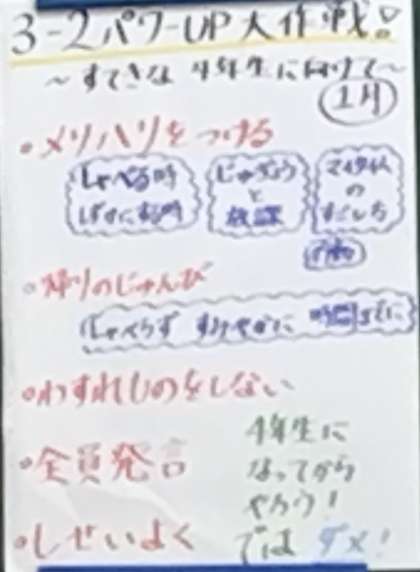 3-2パワーUP大作戦!
～すてきな4年生に向けて～
1月
・メリハリをつける
しゃべる時
しずかにする時
じゅぎょう
と
放課
マイタイム
の
すごし方
・帰りのじゅんび
しゃべらず すみやかに 時間までに
・わすれものをしない
・全員発言
・しせいよく
4年生に
なってから
やろう!
ではダメ!